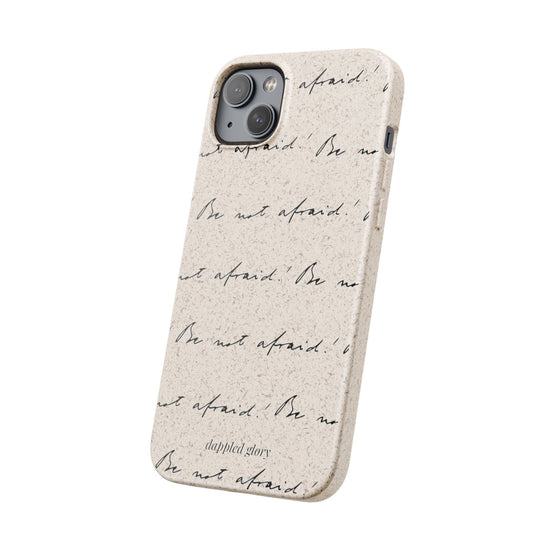 afraid!
not afraid! Be no
Be not afraid!
not afraid! Be no
Be not afraid!
not afraid! Be no
dappled glory
Be not afraid!